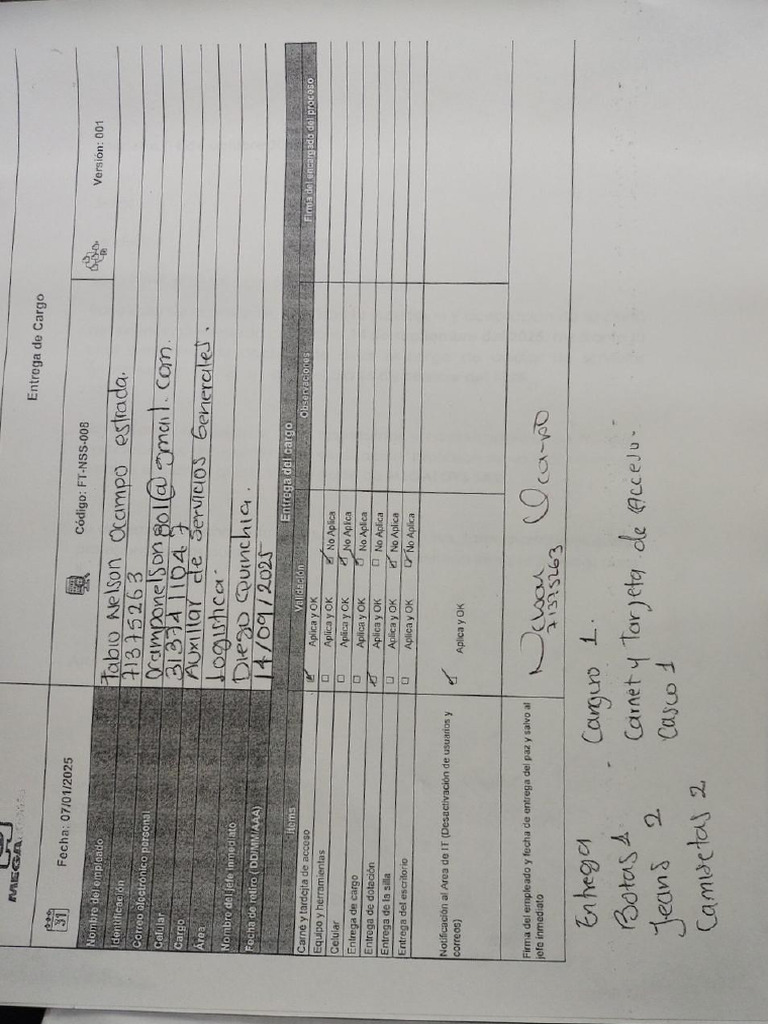 MEGA
Entrega de Cargo
Fecha: 07/01/2025 Código: FT-NSS-008 Versión: 001
Nombre del empleado Fabio Nelson Ocampo estrada.
Identificación 71375263
Correo electrónico personal Ocamponelson801@gmail.com.
Celular 3137411047
Cargo Auxiliar de Servicios Generales.
Área Logistica.
Nombre del jefe inmediato Diego Quinchia.
Fecha de retiro (DD/MM/AAA) 14/09/2025
Entrega del cargo
Ítems Validación Observaciones Firma del encargado del proceso
Carné y tardejta de acceso Aplica y OK
Equipo y herramientas Aplica y OK No Aplica
Celular Aplica y OK No Aplica
Entrega de cargo Aplica y OK No Aplica
Entrega de dotación Aplica y OK No Aplica
Entrega de la silla Aplica y OK No Aplica
Entrega del escritorio Aplica y OK No Aplica
Notificación al Área de IT (Desactivación de usuarios y
correos) Aplica y OK
Firma del empleado y fecha de entrega del paz y salvo al
jefe inmediato Nelson Ocampo
71375263
Entrega - Canguro 1.
Botas 1 Carnet y Tarjeta de Acceso.
Jeans 2 Casco 1
Camisetas 2